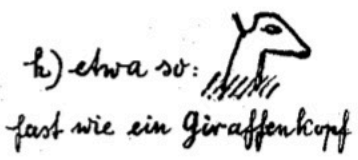 k) etwa so:
fast wie ein Giraffenkopf